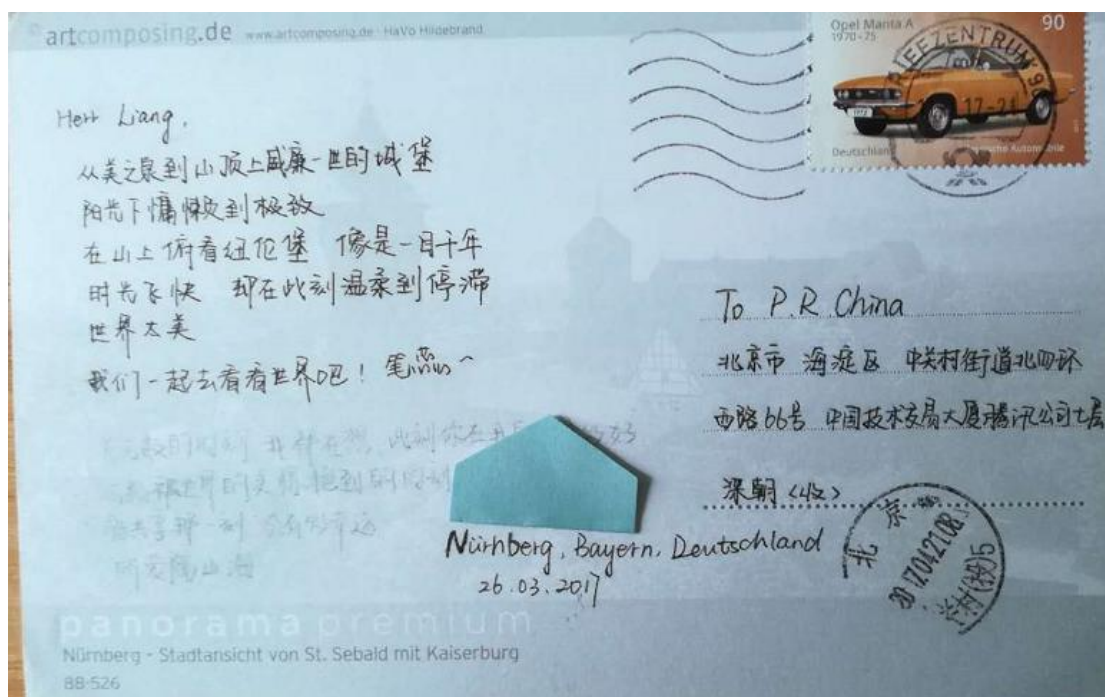 artcomposing.de www.artcomposing.de · HaVo Hildebrand
Opel Manta A 90
1970-75
1972
Deutschland Automobile
17-21
Herr Liang,
从美之泉到山顶上威廉一世的城堡
阳光下慵懒到极致
在山上俯看纽伦堡 像是一目千年
时光飞快 却在此刻温柔到停滞
世界太美
我们一起去看看世界吧!笔芯~
To P.R.China
北京市 海淀区 中关村街道北四环
西路66号 中国技术交易大厦腾讯公司七层
深朝<收>
北京
2017.04.21.08
Nürnberg, Bayern, Deutschland
26.03.2017
panorama premium
Nürnberg - Stadtansicht von St. Sebald mit Kaiserburg
88-526